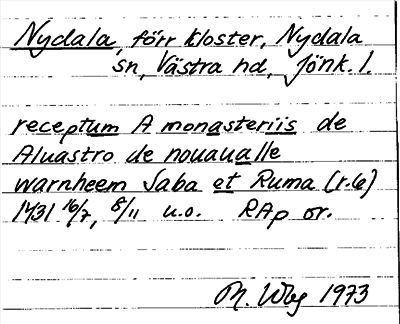 Nydala, förr kloster, Nydala
sn, Västra hd, Jönk. l.
receptum A monasteriis de
Aluastro de nouaualle
warnheem Saba et Ruma (r.6)
1431 16/7, 8/11 u.o. RAp or.
M. Wbg 1973